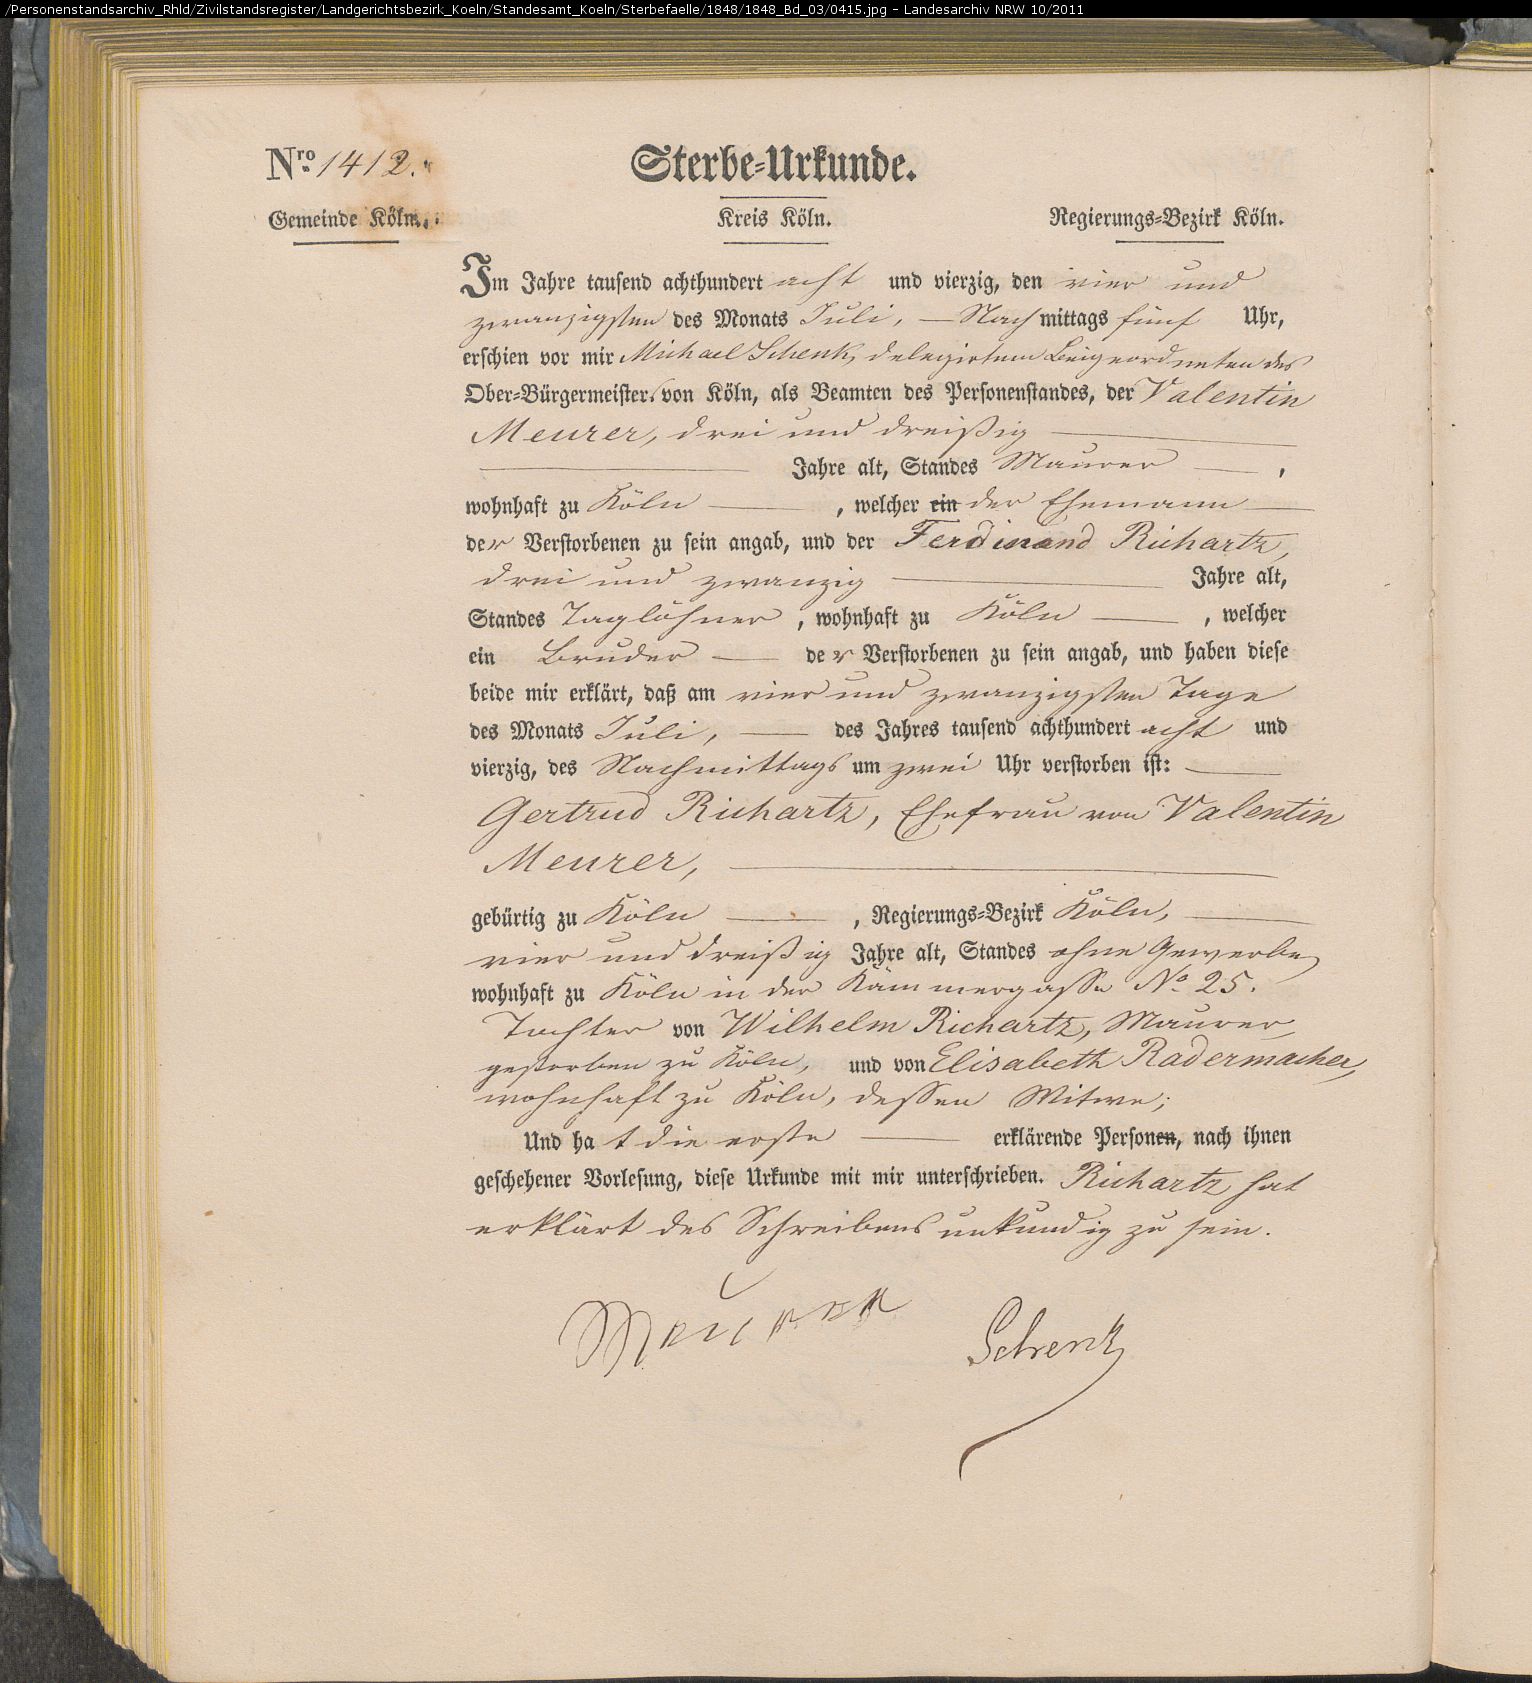 /Personenstandsarchiv_Rhld/Zivilstandsregister/Landgerichtsbezirk_Koeln/Standesamt_Koeln/Sterbefaelle/1848/1848_Bd_03/0415.jpg – Landesarchiv NRW 10/2011
Nro. 1412. Sterbe-Urkunde.
Gemeinde Köln. Kreis Köln. Regierungs-Bezirk Köln.
Im Jahre tausend achthundert acht und vierzig, den vier und
zwanzigsten des Monats Juli, — Nachmittags fünf Uhr,
erschien vor mir Michael Schenk, delegirtem Beigeordneten des
Ober-Bürgermeisters von Köln, als Beamten des Personenstandes, der Valentin
Meurer, drei und dreißig —
— Jahre alt, Standes Maurer —,
wohnhaft zu Köln —, welcher ein der Ehemann —
der Verstorbenen zu sein angab, und der Ferdinand Richartz,
drei und zwanzig — Jahre alt,
Standes Taglöhner, wohnhaft zu Köln —, welcher
ein Bruder — der Verstorbenen zu sein angab, und haben diese
beide mir erklärt, daß am vier und zwanzigsten Tage
des Monats Juli, — des Jahres tausend achthundert acht und
vierzig, des Nachmittags um zwei Uhr verstorben ist: —
Gertrud Richartz, Ehefrau von Valentin
Meurer, —
gebürtig zu Köln —, Regierungs-Bezirk Köln, —
vier und dreißig Jahre alt, Standes ohne Gewerbe,
wohnhaft zu Köln in der Kämmergasse No 25.
Tochter von Wilhelm Richartz, Maurer,
gestorben zu Köln, und von Elisabeth Radermacher,
wohnhaft zu Köln, dessen Witwe;
Und hat die erste — erklärende Personen, nach ihnen
geschehener Vorlesung, diese Urkunde mit mir unterschrieben. Richartz hat
erklärt des Schreibens unkundig zu sein.
Meurer Schenk